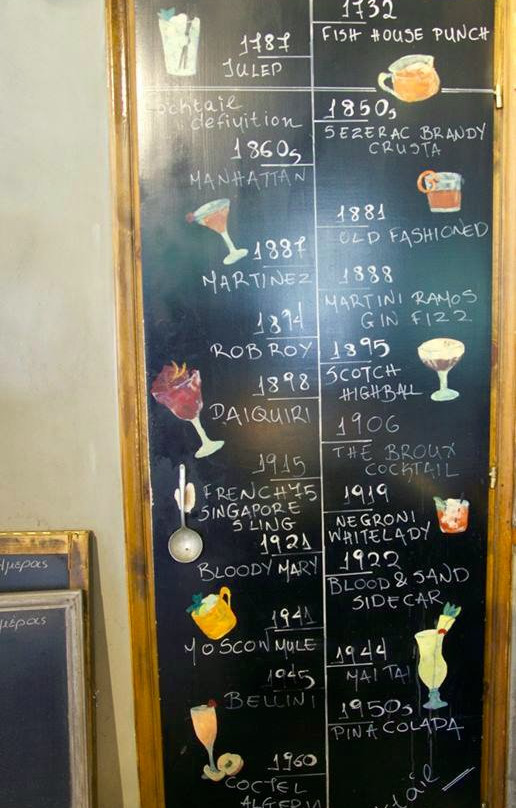 1732
FISH HOUSE PUNCH
1787
JULEP
Cocktail
defiyition
1850s
SEZERAC BRANDY
CRUSTA
1860s
MANHATTAN
1881
OLD FASHIONED
1887
MARTINEZ
1888
MARTINI RAMOS
GIN FIZZ
1894
ROB ROY
1895
SCOTCH
HIGHBALL
1898
DAIQUIRI
1906
THE BROUX
COCKTAIL
1915
FRENCH 75
SINGAPORE
SLING
1919
NEGRONI
WHITELADY
1921
BLOODY MARY
1922
BLOOD & SAND
SIDECAR
1941
MOSCOW MULE
1944
MAI TAI
1945
BELLINI
1950s
PINA COLADA
1960
COCTEL